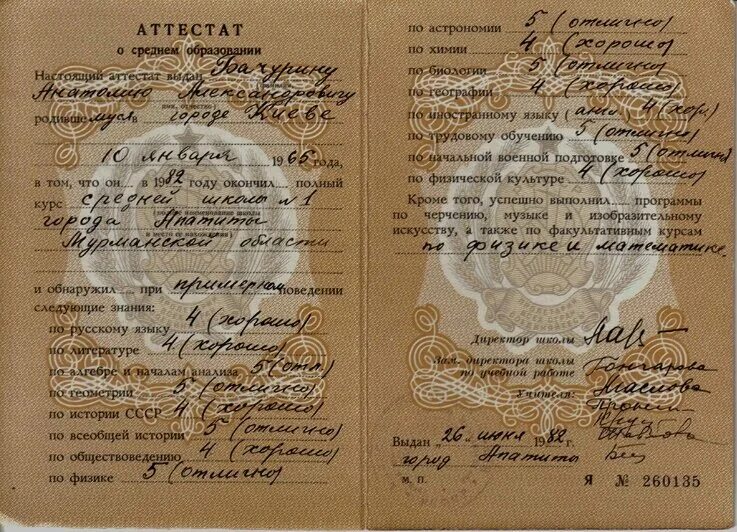 АТТЕСТАТ
о среднем образовании
Настоящий аттестат выдан Бачурину
Анатолию Александровичу
имя, отчество
родившемуся в городе Киеве
10 января 1965 года,
в том, что он в 1982 году окончил полный
курс средней школы №1
(полное наименование школы
города Апатиты
и место ее нахождения)
Мурманской области
и обнаружил при примерном поведении
следующие знания:
по русскому языку 4 (хорошо)
по литературе 4 (хорошо)
по алгебре и началам анализа 5 (отл.)
по геометрии 5 (отлично)
по истории СССР 4 (хорошо)
по всеобщей истории 5 (отлично)
по обществоведению 4 (хорошо)
по физике 5 (отлично)
по астрономии 5 (отлично)
по химии 4 (хорошо)
по биологии 5 (отлично)
по географии 4 (хорошо)
по иностранному языку (англ.) 4 (хор.)
по трудовому обучению 5 (отлично)
по начальной военной подготовке 5 (отлично)
по физической культуре 4 (хорошо)
Кроме того, успешно выполнил программы
по черчению, музыке и изобразительному
искусству, а также по факультативным курсам
по физике и математике.
Директор школы
Зам. директора школы
по учебной работе Гончарова
Учителя: Маслова
Выдан 26 июня 1982 г.
город Апатиты
М. П.
Я № 260135